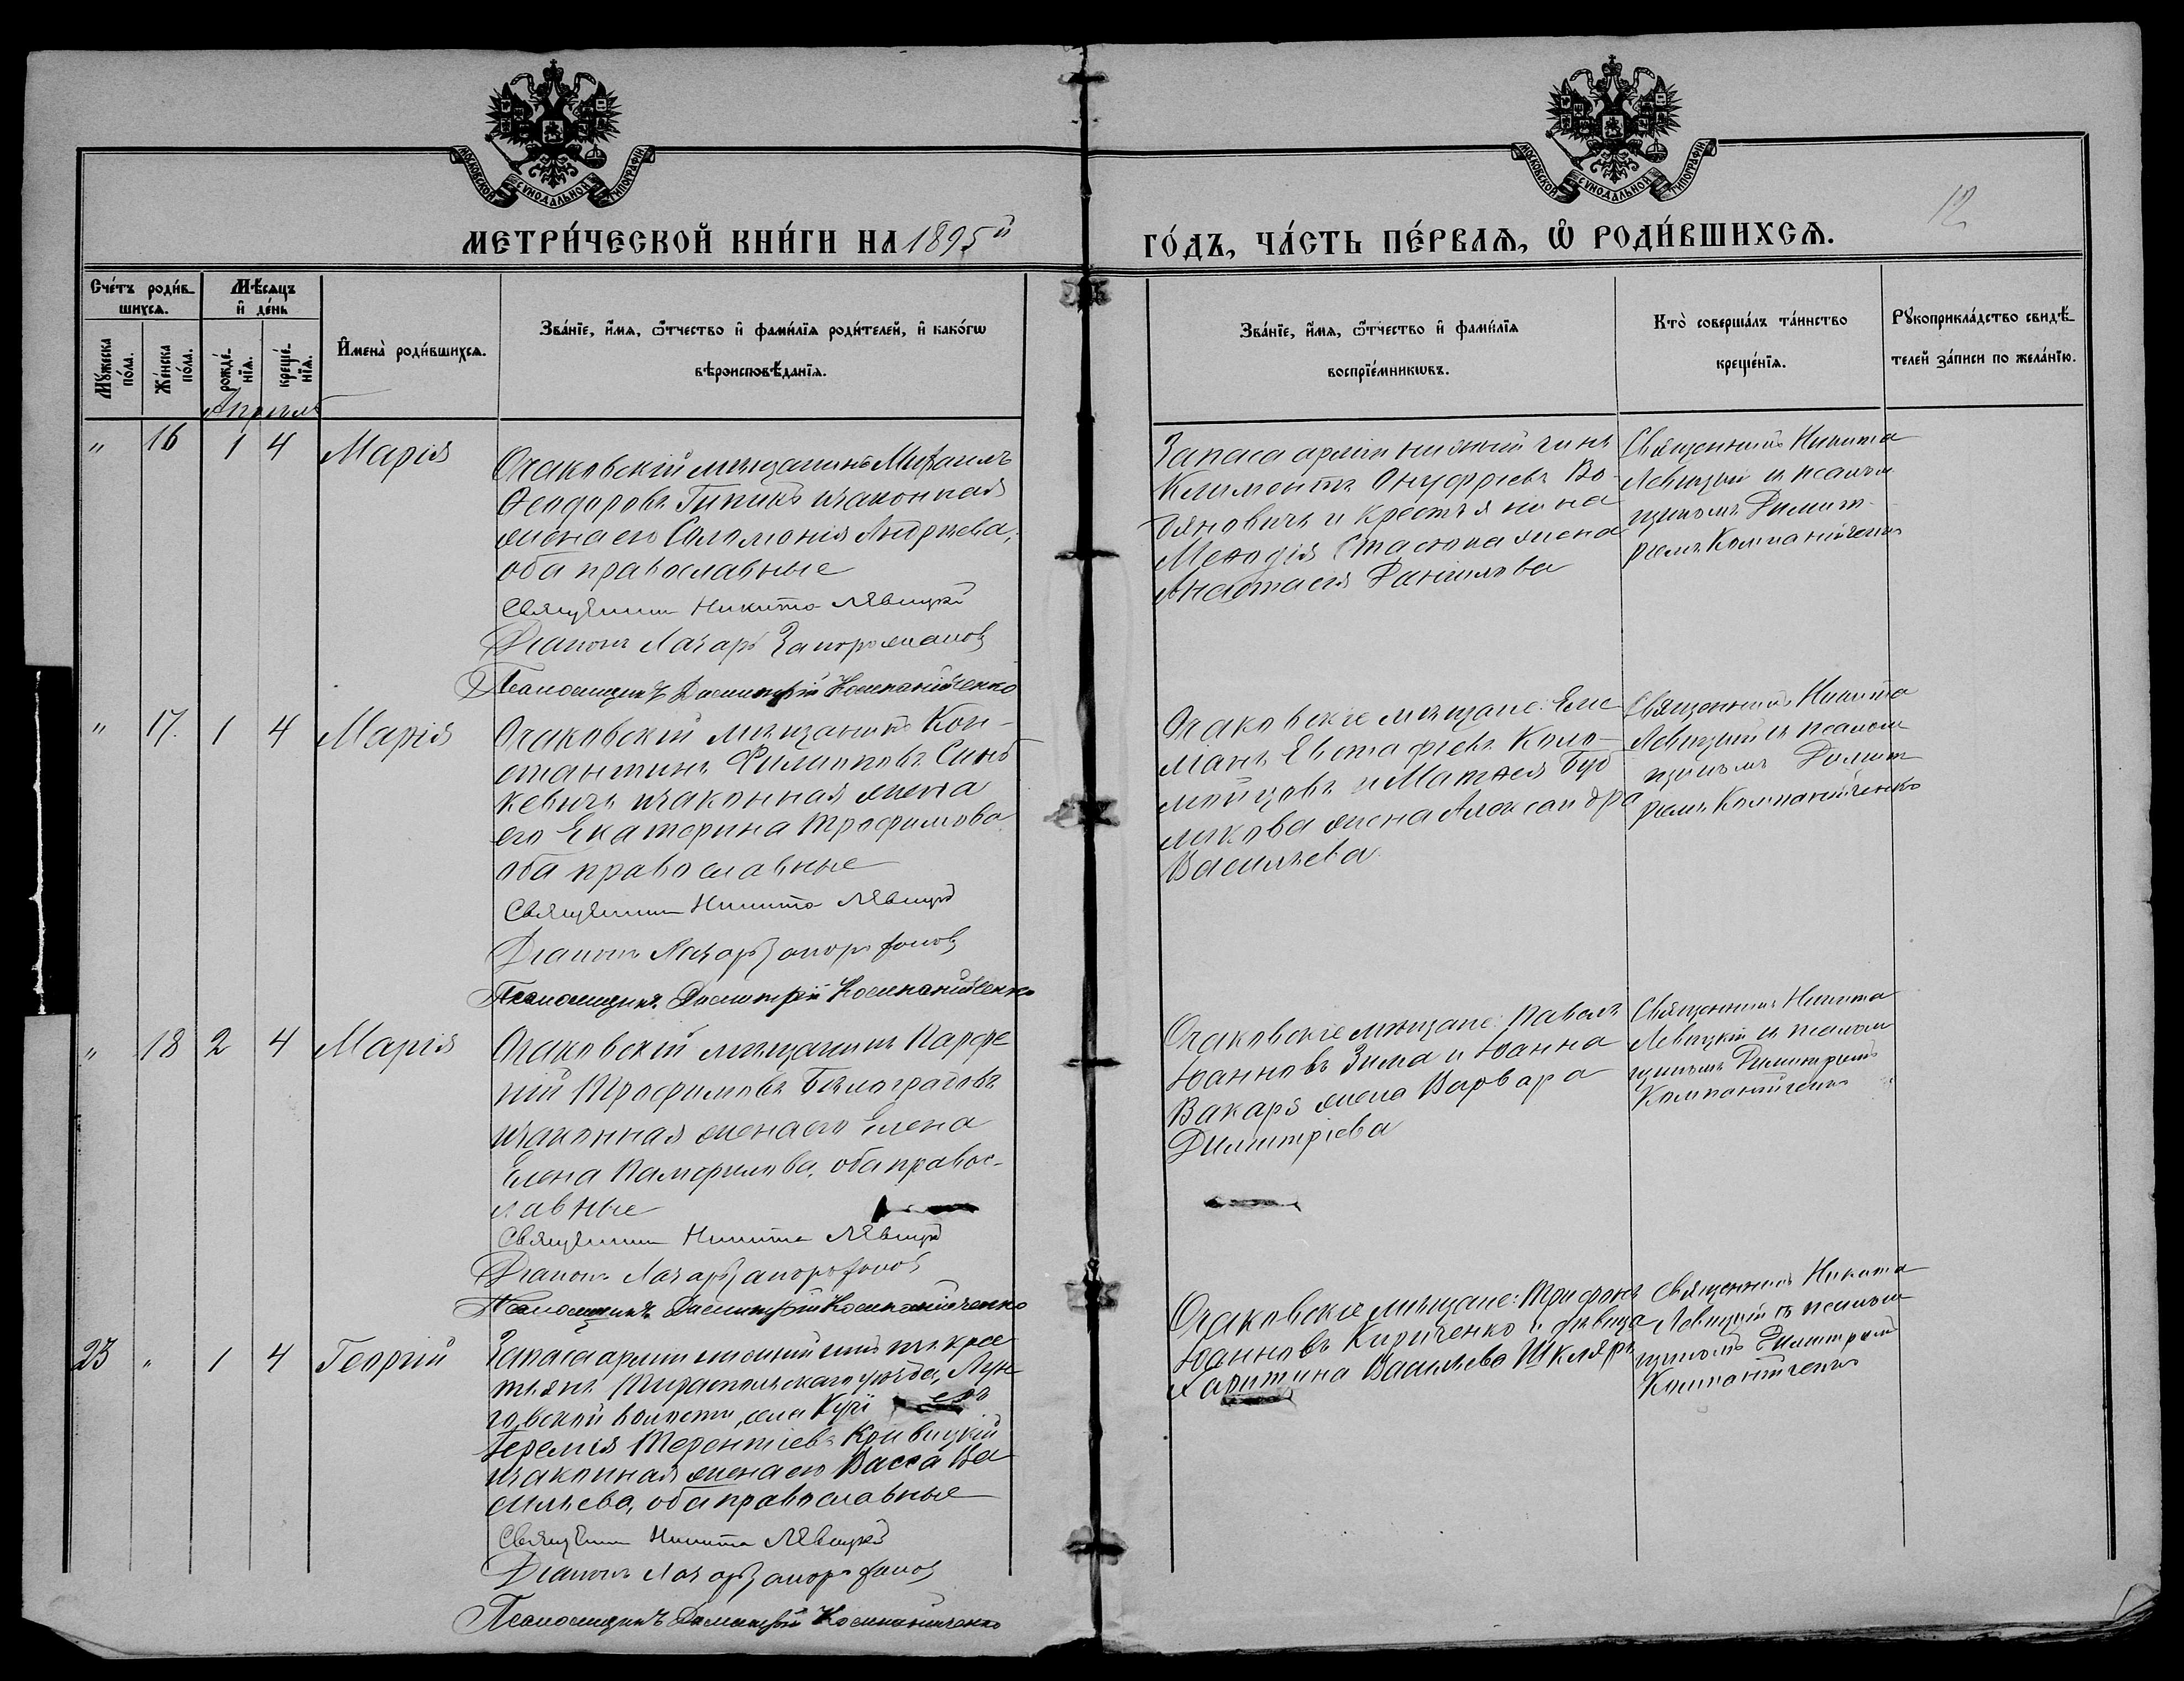 МОСКОВСКОЙ СѴНОДАЛЬНОЙ ТИПОГРАФІИ
МОСКОВСКОЙ СѴНОДАЛЬНОЙ ТИПОГРАФІИ
12
МЕТРИ́ЧЕСКОЙ КНИ́ГИ НА 1895й
ГО́ДЪ, ЧА́СТЬ ПЕ́РВАЯ, Ѡ РОДИ́ВШИХСЯ.
Сче́тъ роди́в-
шихся.
Мѣ́сяцъ
и де́нь
Му́жеска по́ла.
Же́нска по́ла.
рожде́-
нїя.
креще́-
нїя.
Имена̀ роди́вшихся.
Зва́нїе, и́мя, ѻ́тчество и фами́лїя роди́телей, и како́гѡ
вѣроисповѣ́данїя.
Зва́нїе, и́мя, ѻ́тчество и фами́лїя
воспрїе́мникѡвъ.
Кто̀ соверша́лъ та́инство
креще́нїя.
Рукоприкла́дство свидѣ́-
телей за́писи по жела́нїю.
Апрѣль
" 16 1 4 Марія
Очаковскій мѣщанинъ Михаилъ
Ѳеодоровъ Гипикъ и законная
жена его Соломонія Андреева,
оба православные
Священникъ Никита Левицкій
Діаконъ Лазарь Запорожановъ
Псаломщикъ Димитрій Компанійченко
Запаса арміи нижній чинъ
Климентъ Онуфріевъ Во-
яновичъ и крестьянина
Меѳодія Стасюка жена
Анастасія Даніилова
Священникъ Никита
Левицкій и псалом-
щикомъ Димит-
ріемъ Компанійченко
" 17. 1 4 Марія
Очаковскій мѣщанинъ Кон-
стантинъ Филипповъ Синь
кевичъ и законная жена
его Екатерина Трофимова
оба православные
Священникъ Никита Левицкій
Діаконъ Лазарь Запорожановъ
Псаломщикъ Димитрій Компанійченко
Очаковскіе мѣщане: Еми-
ліанъ Евстафіевъ Коло-
мойцовъ и Матѳея Буд
лякова жена Александра
Васильева
Священникъ Никита
Левицкій и псалом
щикомъ Димит
ріемъ Компанійченко
" 18 2 4 Марія
Очаковскій мѣщанинъ Парѳе
ній Трофимовъ Бѣлоградовъ
и законная жена его Елена
Елена Памфилова, оба правос-
лавные
Священникъ Никита Левицкій
Діаконъ Лазарь Запорожановъ
Псаломщикъ Димитрій Компанійченко
Очаковскіе мѣщане: Павелъ
Іоанновъ Зима и Іоанна
Вакаря жена Варвара
Димитріева
Священникъ Никита
Левицкій и псалом
щикомъ Димитріемъ
Компанійченко
23 " 1 4 Георгій
Запаса арміи нижній чинъ изъ крес
тьянъ Тираспольскаго уѣзда,
говской волости, села
Іеремія Терентіевъ Кривицкій
и законная жена его Васса Ва
сильева, оба православные
Священникъ Никита Левицкій
Діаконъ Лазарь Запорожановъ
Псаломщикъ Димитрій Компанійченко
Очаковскіе мѣщане: Трифонъ
Іоанновъ Кириченко и дѣвица
Харитина Васильева Шкляръ
Священникъ Никита
Левицкій съ псалом
щикомъ Димитріемъ
Компанійченко